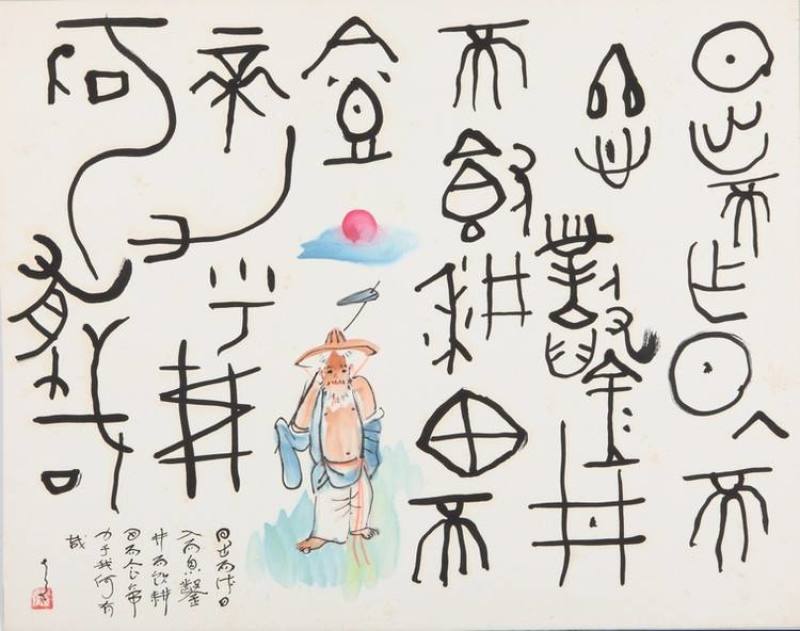 日出而乍日入而
息鑿井
而飲耕田而
食
帝力于我
何有哉
日出而作日
入而息鑿
井而飲耕
田而食帝
力于我何有
哉